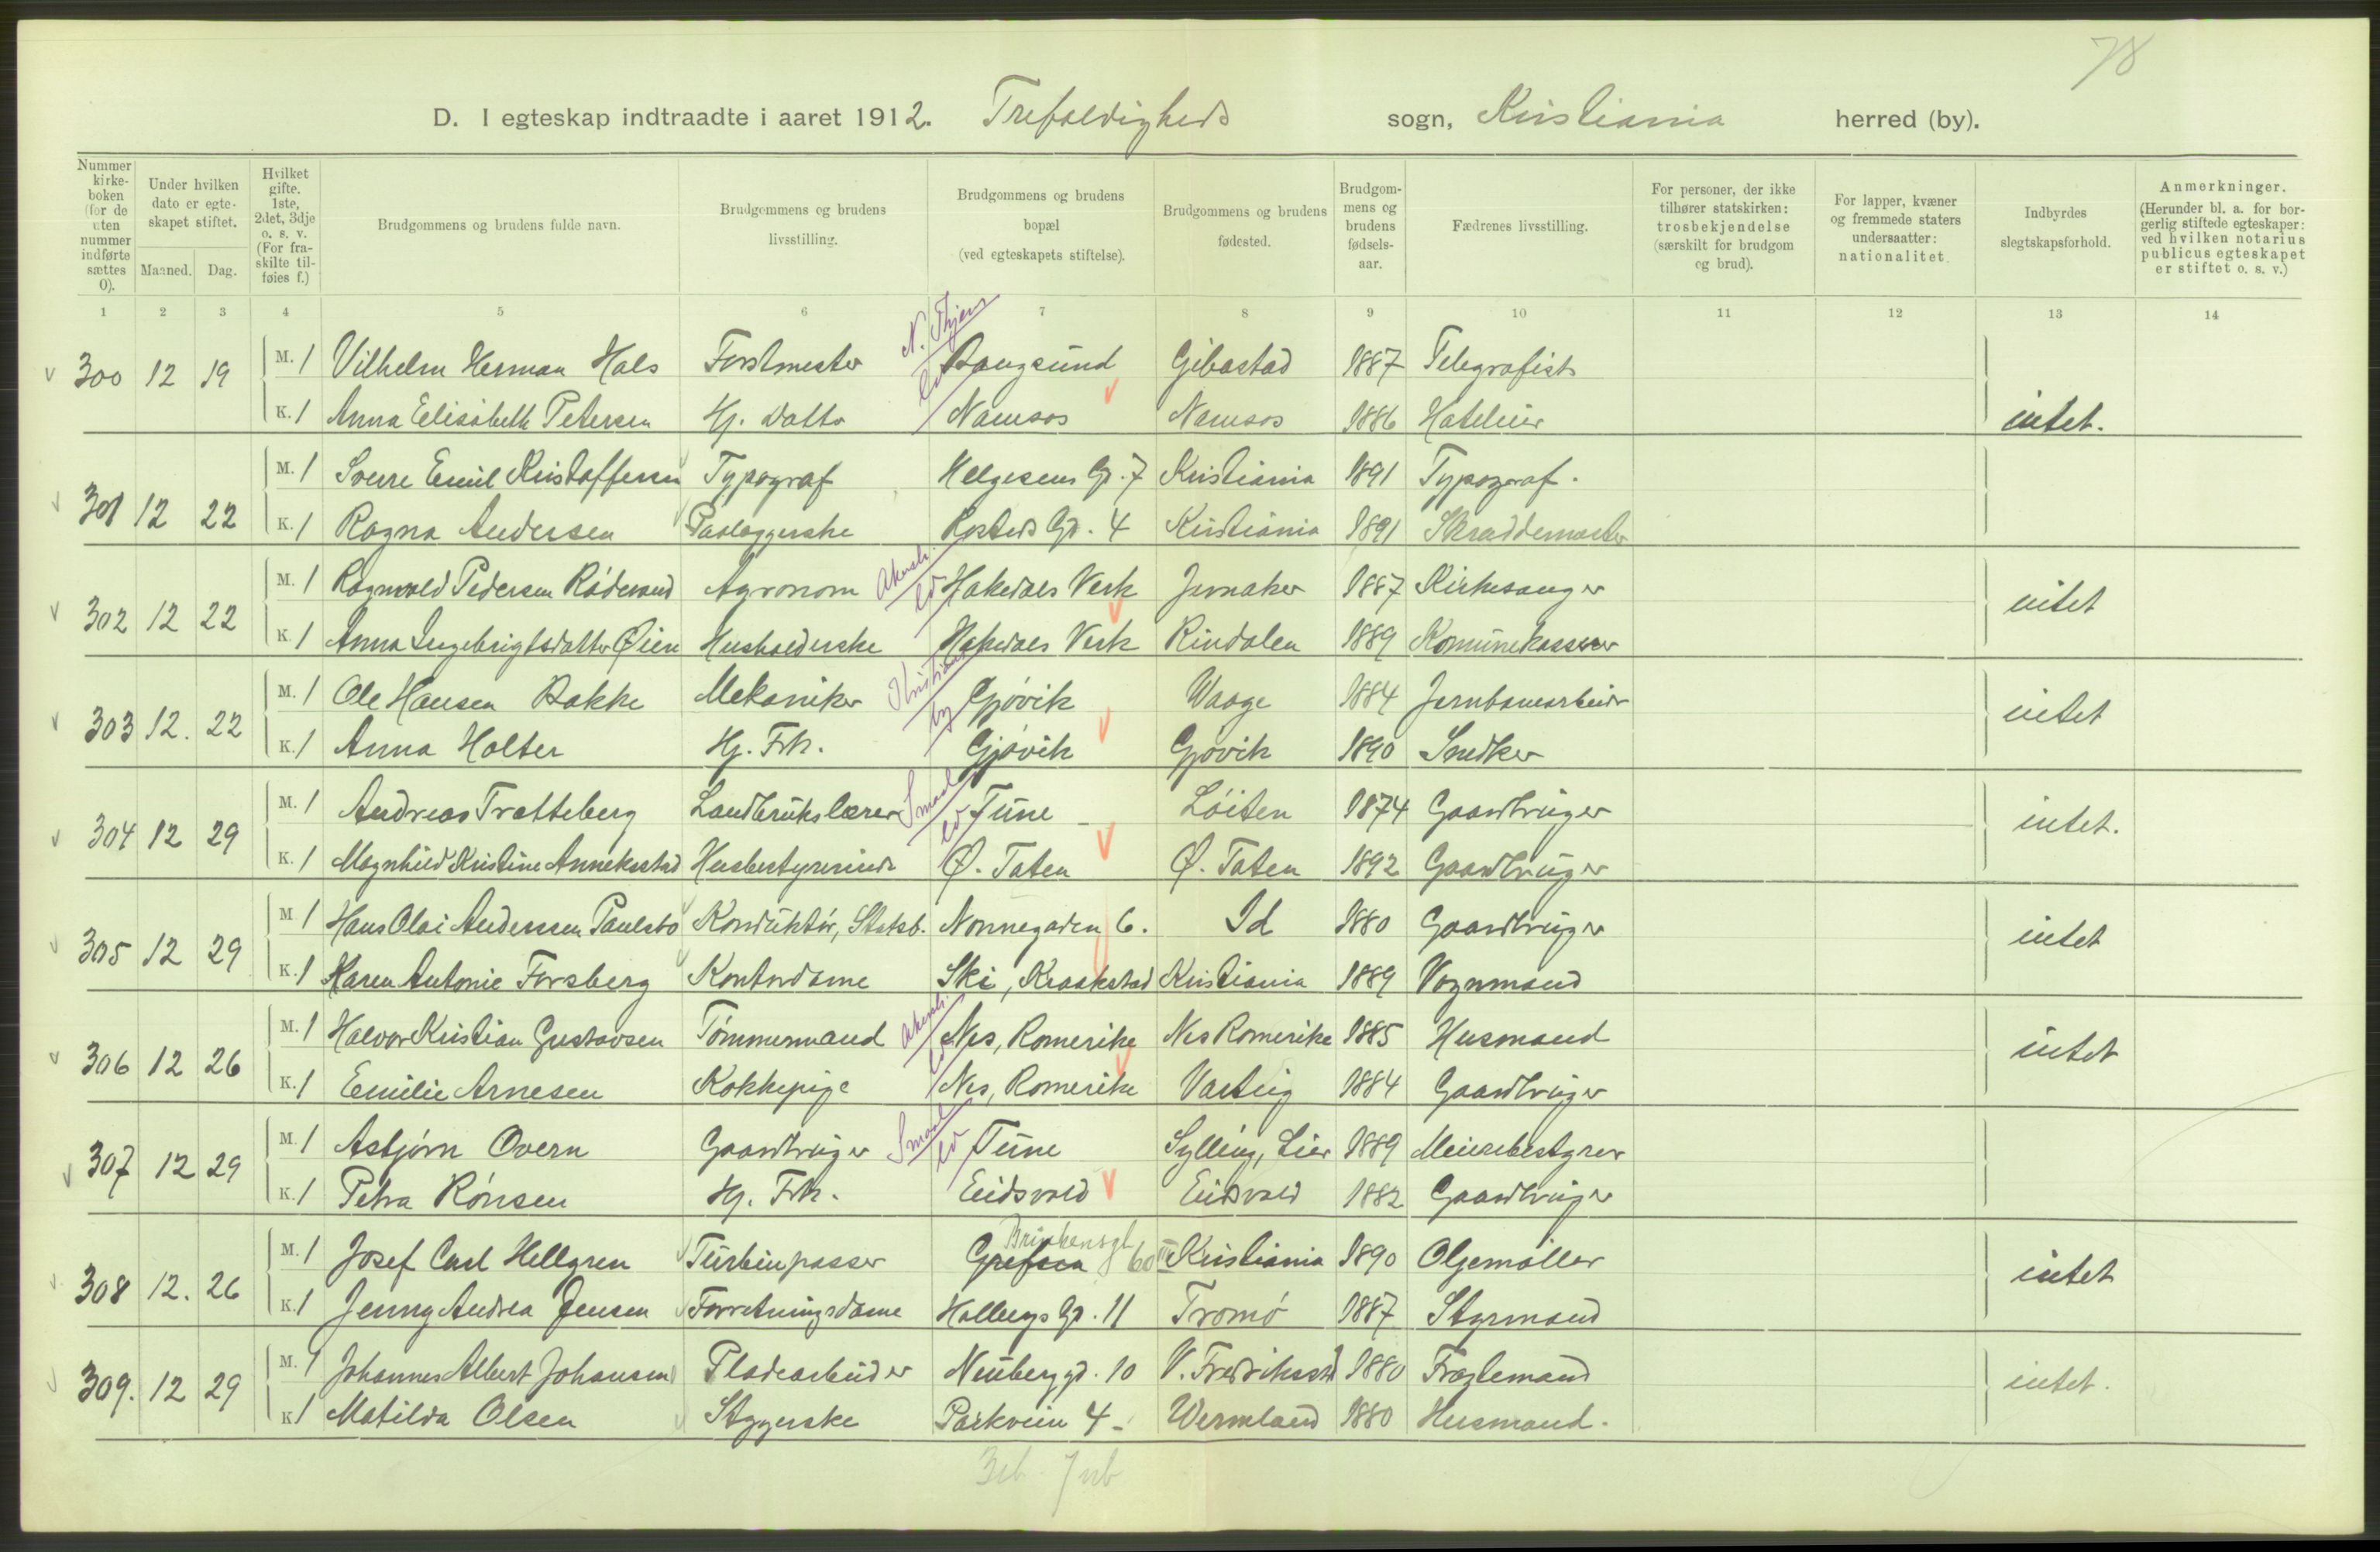 78
D. I egteskap indtraadte i aaret 1912. Trefoldigheds sogn, Kristiania herred (by).
Nummer kirke-boken (for de uten nummer indførte sættes 0).
Under hvilken dato er egte-skapet stiftet.
Maaned. Dag.
Hvilket gifte. 1ste, 2det, 3dje o. s. v. (For fra-skilte til-føies f.)
Brudgommens og brudens fulde navn.
Brudgommens og brudens livsstilling.
Brudgommens og brudens bopæl (ved egteskapets stiftelse).
Brudgommens og brudens fødested.
Brudgom-mens og brudens fødsels-aar.
Fædrenes livsstilling.
For personer, der ikke tilhører statskirken: trosbekjendelse (særskilt for brudgom og brud).
For lapper, kvæner og fremmede staters undersaatter: nationalitet.
Indbyrdes slegtskapsforhold.
Anmerkninger. (Herunder bl. a. for bor-gerlig stiftede egteskaper: ved hvilken notarius publicus egteskapet er stiftet o. s. v.)
1 2 3 4 5 6 7 8 9 10 11 12 13 14
300 12 19 M. 1 Vilhelm Herman Hals Forstmester N. Thjem Bangsund Gibostad 1887 Telegrafist
K. 1 Anna Elisabeth Petersen Hj. datter Namsos Namsos 1886 Hotelier intet.
301 12 22 M. 1 Sverre Emil Kristoffersen Typograf Helgesens Gd. 7 Kristiania 1891 Typograf.
K. 1 Ragna Andersen Paalæggerske Rosteds Gd. 4 Kristiania 1891 Skræddermester
302 12 22 M. 1 Ragnvald Pedersen Rådesand Agronom Akersh. ld Hakedals Verk Jevnaker 1887 Kirkesanger intet
K. 1 Anna Ingebrigtsdatter Øien Husholderske Hakedals Verk Rindalen 1889 Komunekasserer
303 12. 22 M. 1 Ole Hansen Bakke Mekaniker Kristians by Gjøvik Waage 1884 Jernbanearbeider intet
K. 1 Anna Holter Hj. Frk. Gjøvik Gjøvik 1890 Snedker
304 12 29 M. 1 Andreas Tratteberg Landbrukslærer Smaal ld Tune Løiten 1874 Gaardbruger intet.
K. 1 Magnhild Kristine Annekstad Husbestyrerinde Ø. Toten Ø. Toten 1892 Gaardbruger
305 12 29 M 1 Hans Olai Anderssen Paulsbo Konduktør, Statsb. Nonnegaden 6. Id 1880 Gaardbruger intet
K. 1 Karen Antonie Forsberg Kontordame Ski, Kraakstad Kristiania 1889 Vognmand
306 12 26 M. 1 Halvor Kristian Gustavsen Tømmermand Akersh. ld Nes, Romerike Nes Romerike 1885 Husmand intet
K. 1 Emilie Arnesen Kokkepige Nes, Romerike Varteig 1884 Gaardbruger
307 12 29 M. 1 Asbjørn Overn Gaardbruger Smaal ld Tune Sylling, Lier 1889 Meieribestyrer
K. 1 Petra Rønsen Hj. Frk. Eidsvold Eidsvold 1882 Gaardbruger
308 12. 26 M. 1 Josef Carl Hellgren Turbinpasser Grefsen Brinkensgt. 60 III Kristiania 1890 Oljemøller intet
K. 1 Jenny Andrea Jensen Forretningsdame Holbergs Gd. 11 Tromø 1887 Styrmand
309. 12 29 M. 1 Johannes Albert Johansen Pladearbeider Neuberggd. 10 V. Fredriksstd 1880 Fragtemand intet.
K 1 Matilda Olsen Stygerske Parkveien 4 - Wermland 1880 Husmand.